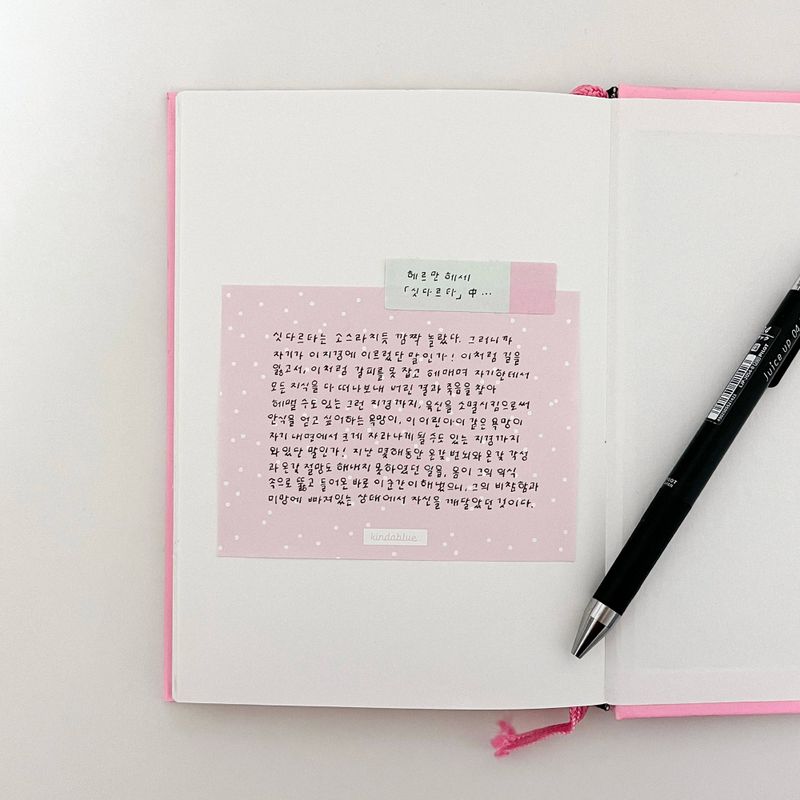 헤르만 헤세
「싯다르타」 中...
싯다르타는 소스라치듯 깜짝 놀랐다. 그러니까
자기가 이 지경에 이르렀단 말인가! 이처럼 길을
잃고서, 이처럼 갈피를 못 잡고 헤매며 자기한테서
모든 지식을 다 떠나보내 버린 결과 죽음을 찾아
헤맬 수도 있는 그런 지경까지, 육신을 소멸시킴으로써
안식을 얻고 싶어하는 욕망이, 이 어린아이 같은 욕망이
자기 내면에서 크게 자라나게 될 수도 있는 지경까지
와 있단 말인가! 지난 몇해동안 온갖 번뇌와 온갖 각성
과 온갖 절망도 해내지 못하였던 일을, 옴이 그의 의식
속으로 뚫고 들어온 바로 이 순간이 해냈으니, 그의 비참함과
미망에 빠져있는 상태에서 자신을 깨달았던 것이다.
kindablue
Juice up 04
PILOT
JAPAN